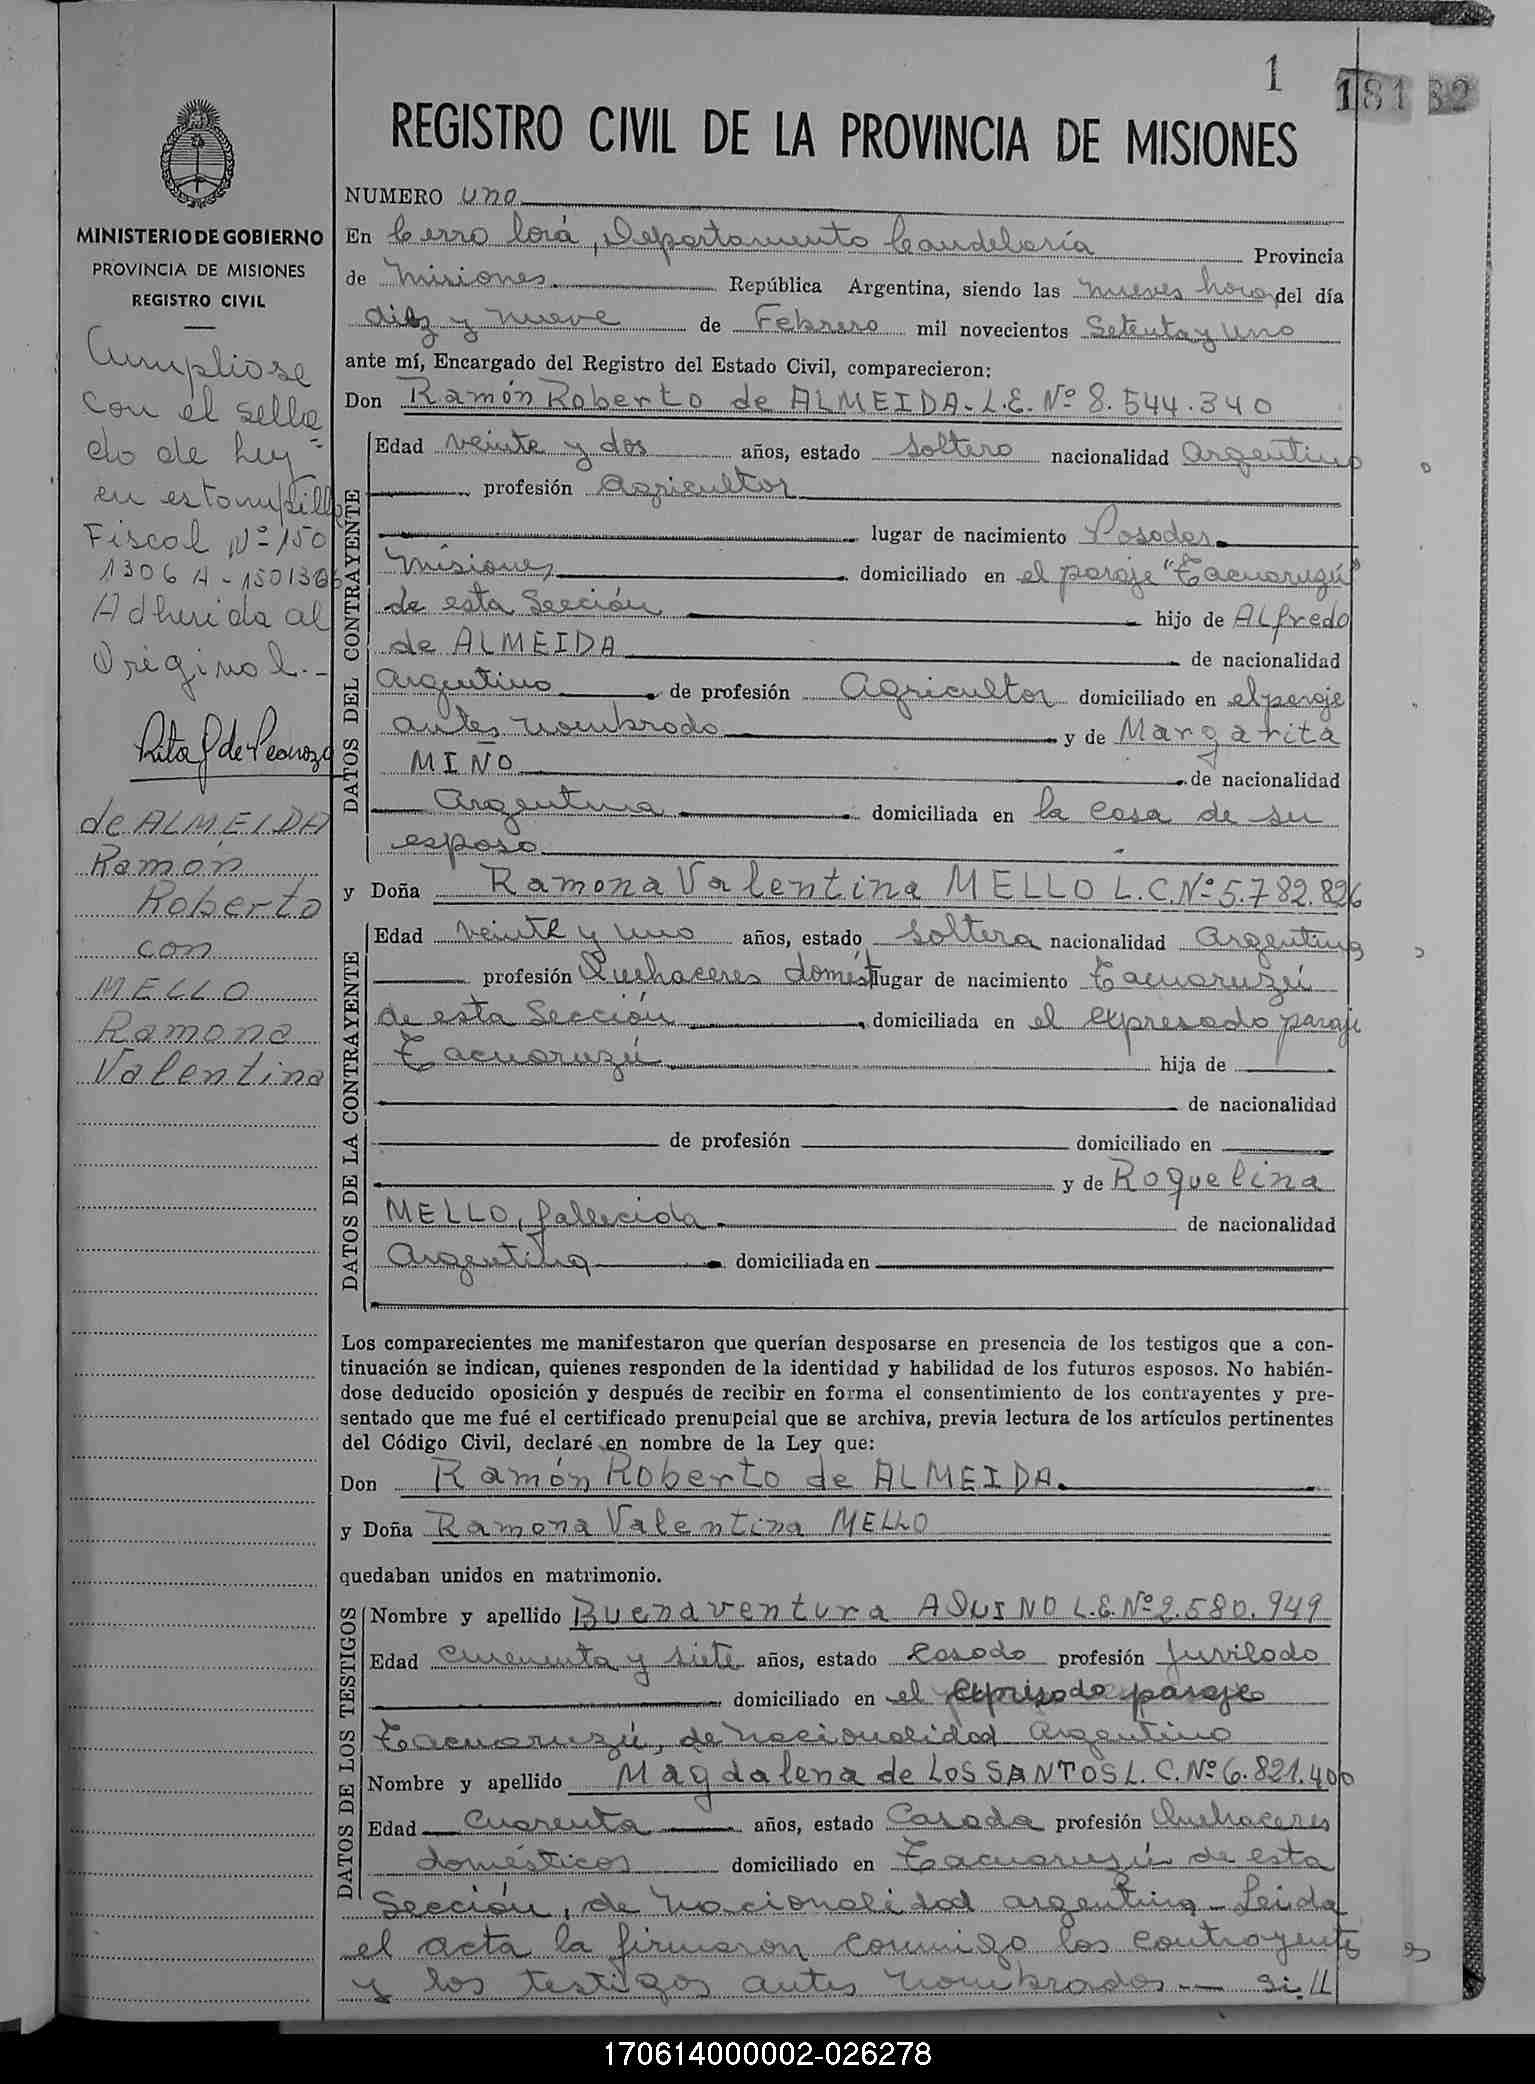 1
181 82
REGISTRO CIVIL DE LA PROVINCIA DE MISIONES
MINISTERIO DE GOBIERNO
PROVINCIA DE MISIONES
REGISTRO CIVIL
Cumpliose
con el sella-
do de ley
en estampilla
Fiscal Nº 150
1306 A - 1501306
Adherida al
Original.-
de ALMEIDA
Ramón
Roberto
con
MELLO
Ramona
Valentina
NUMERO uno
En Cerro Corá, Departamento Candelaria Provincia
de Misiones República Argentina, siendo las nueves horas del día
diez y nueve de Febrero mil novecientos Setenta y uno
ante mí, Encargado del Registro del Estado Civil, comparecieron:
Don Ramón Roberto de ALMEIDA.L.E.Nº 8.544.340
DATOS DEL CONTRAYENTE
Edad veinte y dos años, estado soltero nacionalidad Argentino
profesión agricultor
lugar de nacimiento Posadas
Misiones domiciliado en el paraje "Tacuaruzú"
de esta Sección hijo de ALfredo
de ALMEIDA de nacionalidad
argentino de profesión Agricultor domiciliado en el paraje
antes nombrado y de Margarita
MIÑO de nacionalidad
Argentina domiciliada en la casa de su
esposo
y Doña Ramona Valentina MELLO L.C.Nº 5.782.826
DATOS DE LA CONTRAYENTE
Edad veinte y uno años, estado soltera nacionalidad Argentina
profesión Quehaceres domést lugar de nacimiento Tacuaruzú
de esta Sección domiciliada en el expresado paraje
Tacuaruzú hija de
de nacionalidad
de profesión domiciliado en
y de Roquelina
MELLO, fallecida de nacionalidad
Argentina domiciliada en
Los comparecientes me manifestaron que querían desposarse en presencia de los testigos que a con-
tinuación se indican, quienes responden de la identidad y habilidad de los futuros esposos. No habién-
dose deducido oposición y después de recibir en forma el consentimiento de los contrayentes y pre-
sentado que me fué el certificado prenupcial que se archiva, previa lectura de los artículos pertinentes
del Código Civil, declaré en nombre de la Ley que:
Don Ramón Roberto de ALMEIDA.
y Doña Ramona Valentina MELLO
quedaban unidos en matrimonio.
DATOS DE LOS TESTIGOS
Nombre y apellido Buenaventura AQUINO L.E.Nº 2.580.949
Edad cincuenta y siete años, estado Casado profesión Juvilado
domiciliado en el expresado paraje
Tacuaruzú, de nacionalidad argentino
Nombre y apellido Magdalena de LOS SANTOS L.C.Nº 6.821.400
Edad cuarenta años, estado Casada profesión Quehaceres
domésticos domiciliado en Tacuaruzú de esta
Sección, de nacionalidad argentina - Leida
el acta la firmaron conmigo los contrayentes
y los testigos antes nombrados.— si.//
170614000002-026278